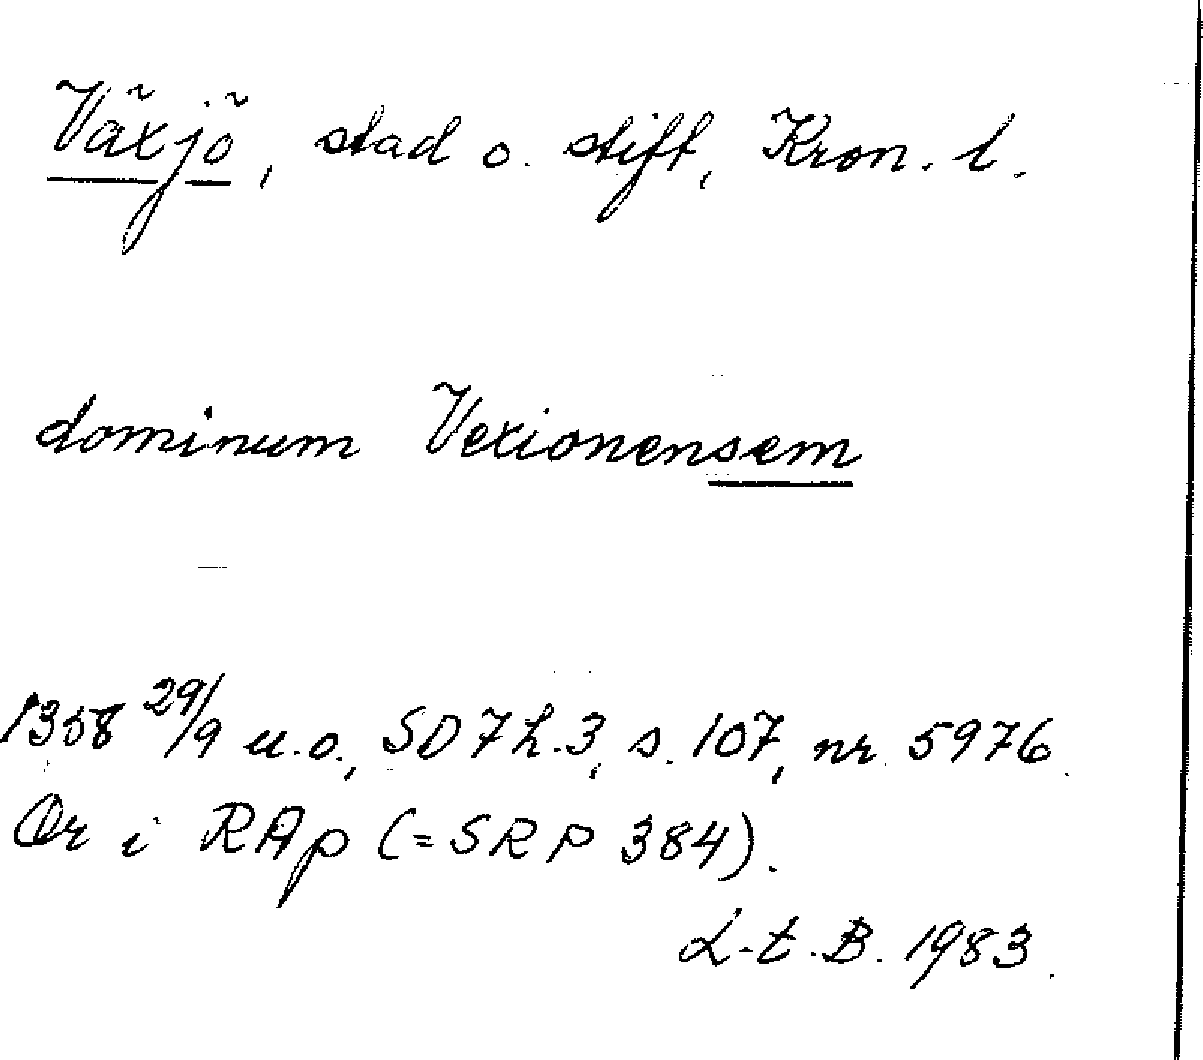 Växjö, stad o. stift, Kron. l.
dominum Vexionensem
1358 29/9 u.o., SD 7 h.3, s. 107, nr 5976.
Or i RAp (= SRP 384).
L-t. B. 1983.